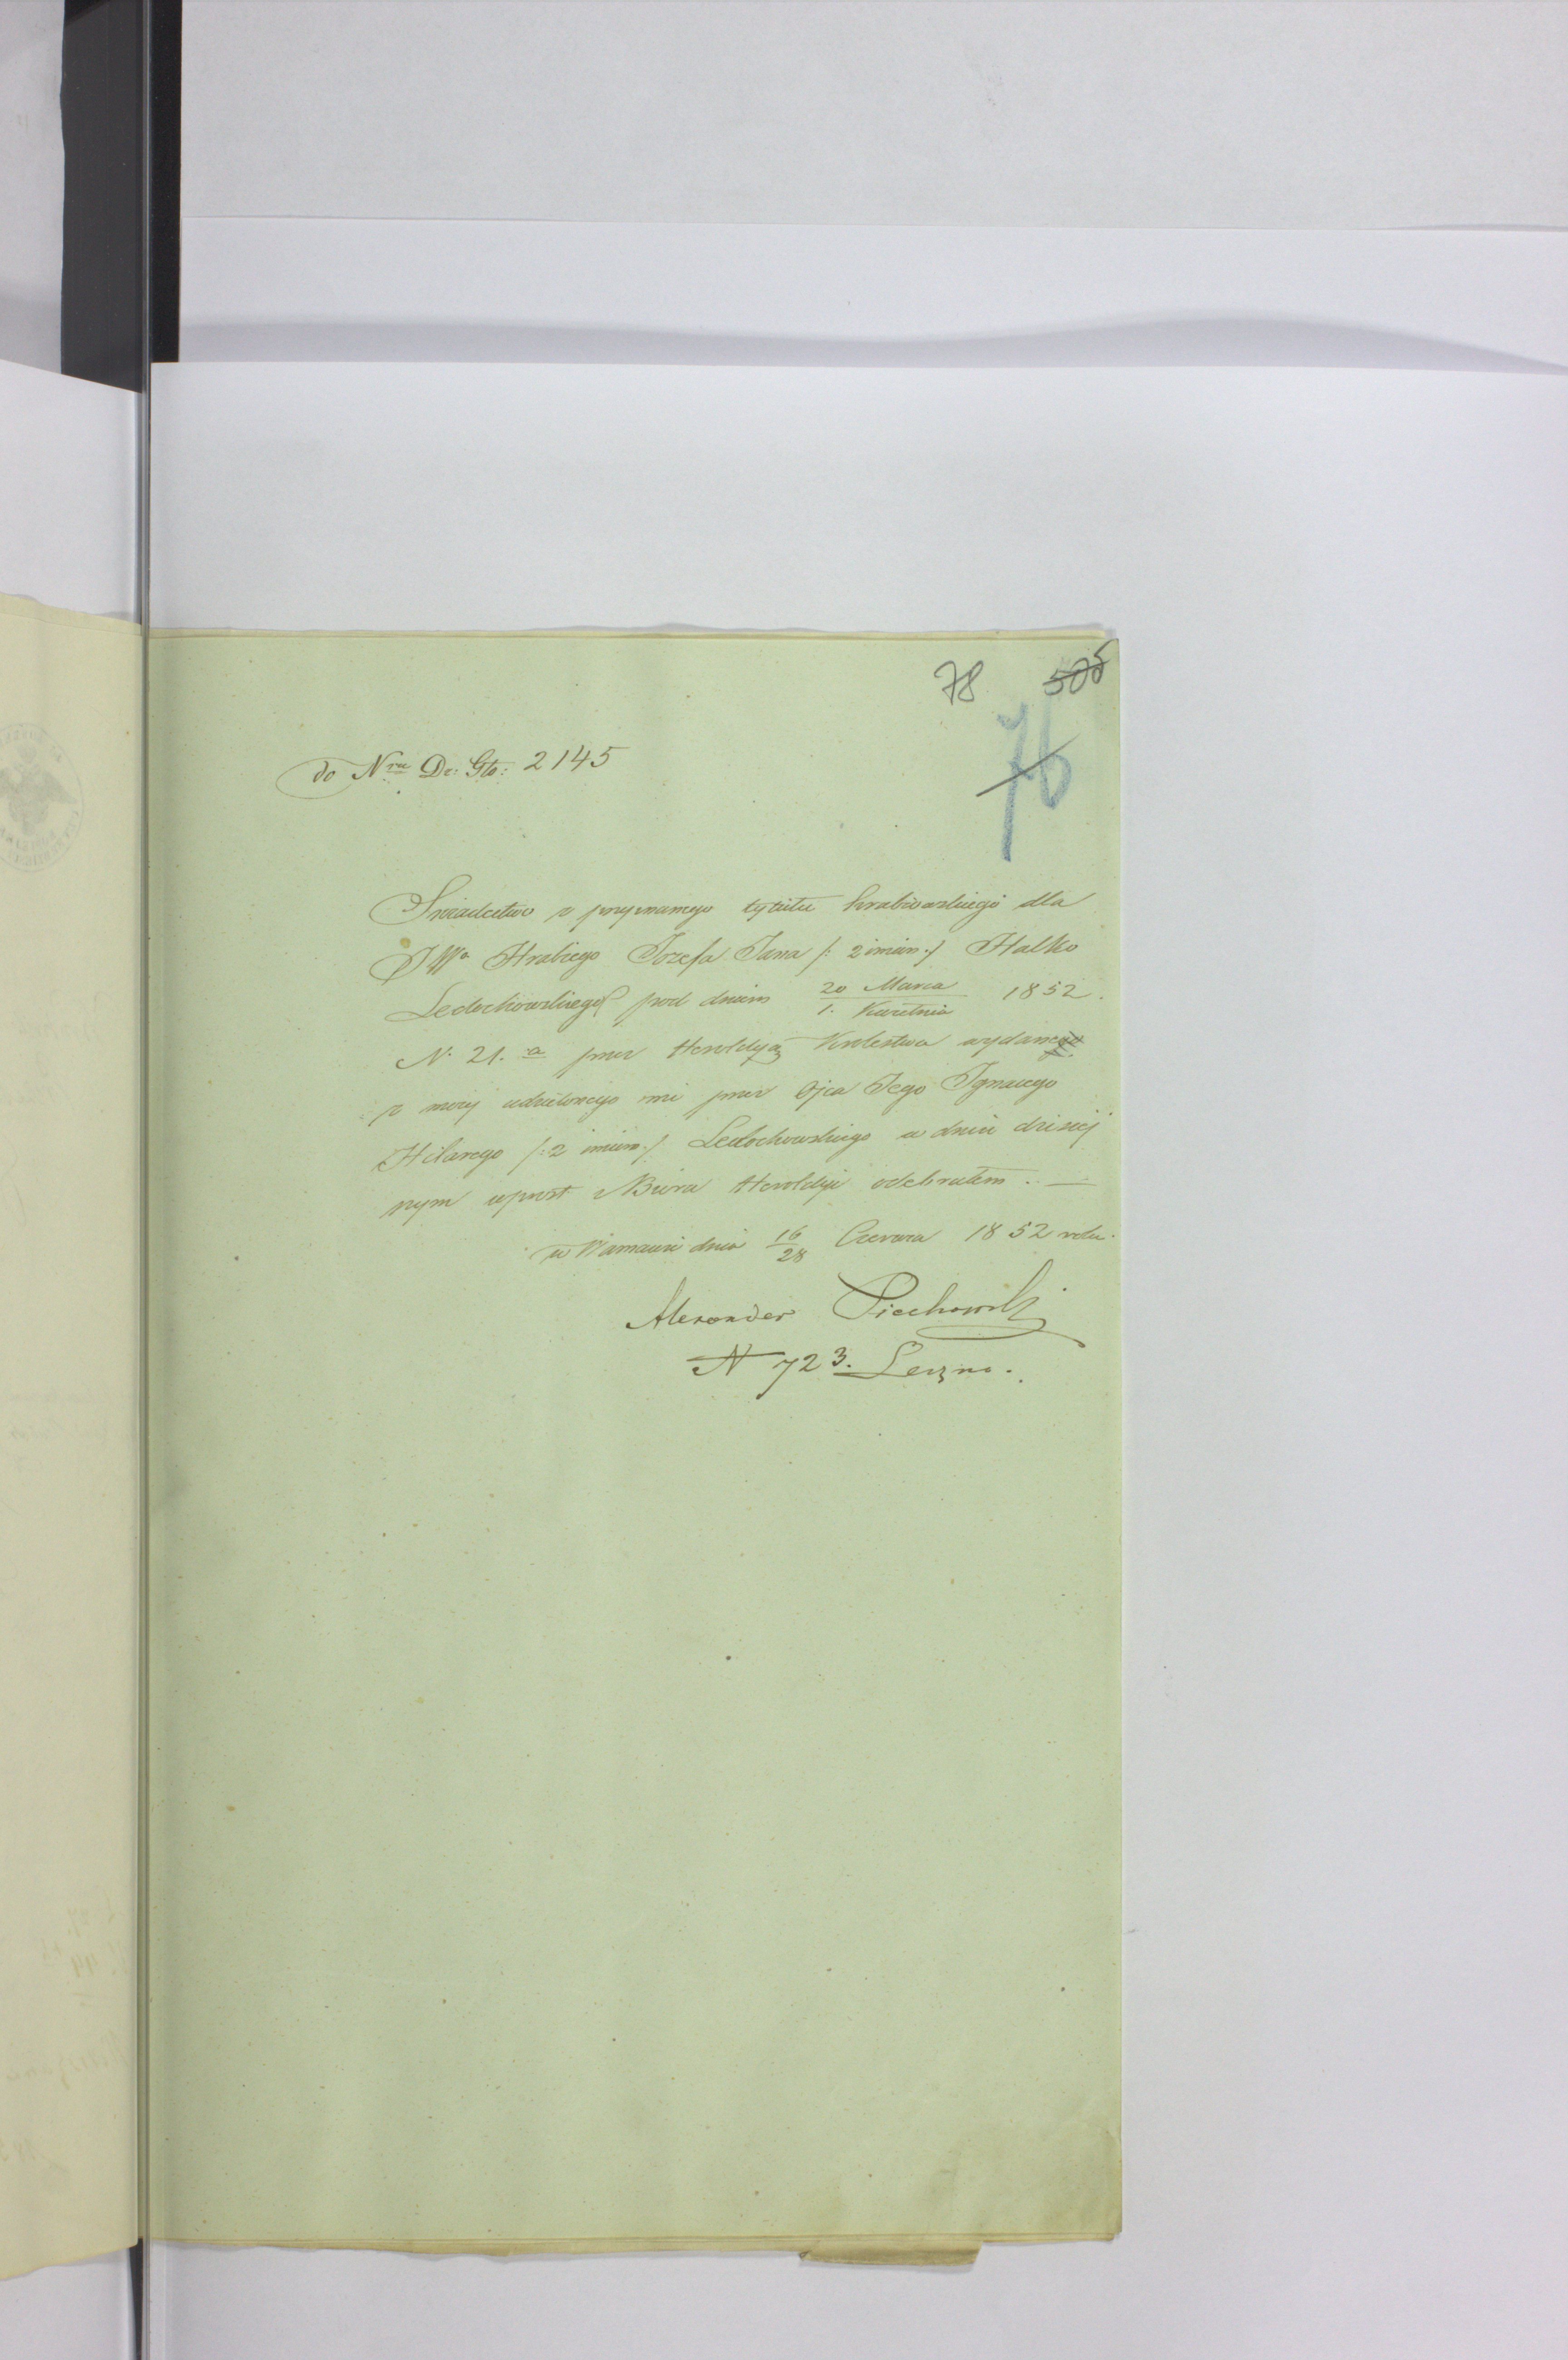 78 505
76
do Nru Dr: Gto: 2145
Świadectwo z przyznanego tytułu hrabiowskiego dla
JWo Hrabiego Jozefa Jana /: 2 imion :/ Halko
Ledochowskiego pod dniem 20 Marca / 1. Kwietnia 1852.
N. 21.a przez Heroldyą Krolestwa wydane
z mocy udzielonego mi przez Ojca Jego Ignacego
Hilarego /: 2 imion :/ Ledochowskiego w dniu dzisiej
szym wprost z Biura Heroldyi odebrałem. —
w Warszawie dnia 16/28 Czerwca 1852 roku.
Alexander Piechowski
N 723. Leszno.